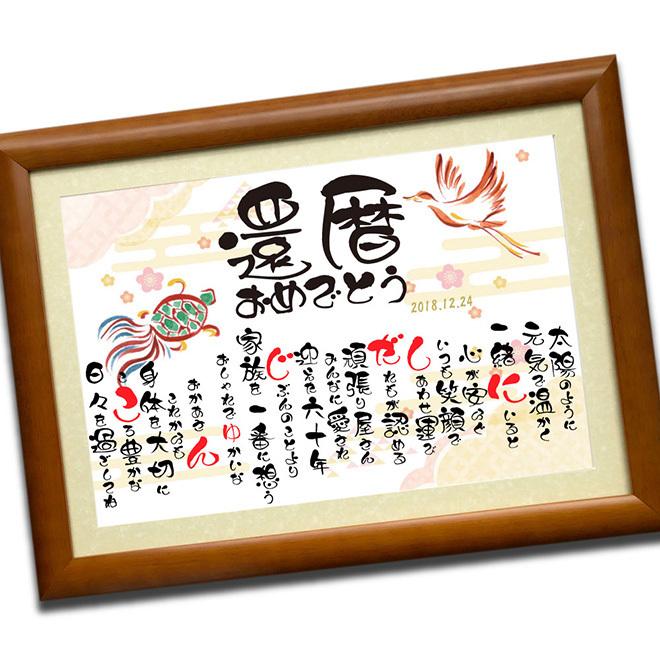 還暦
おめでとう
2018.12.24
太陽のように
元気で温かく
一緒にいると
心が安らぐ
いつも笑顔で
しあわせ運ぶ
だれもが認める
頑張り屋さん
みんなに愛され
迎えた六十年
じぶんのことより
家族を一番に想う
おしゃれでゆかいな
おかあさん
これからも
身体を大切に
こころ豊かな
日々を過ごしてね